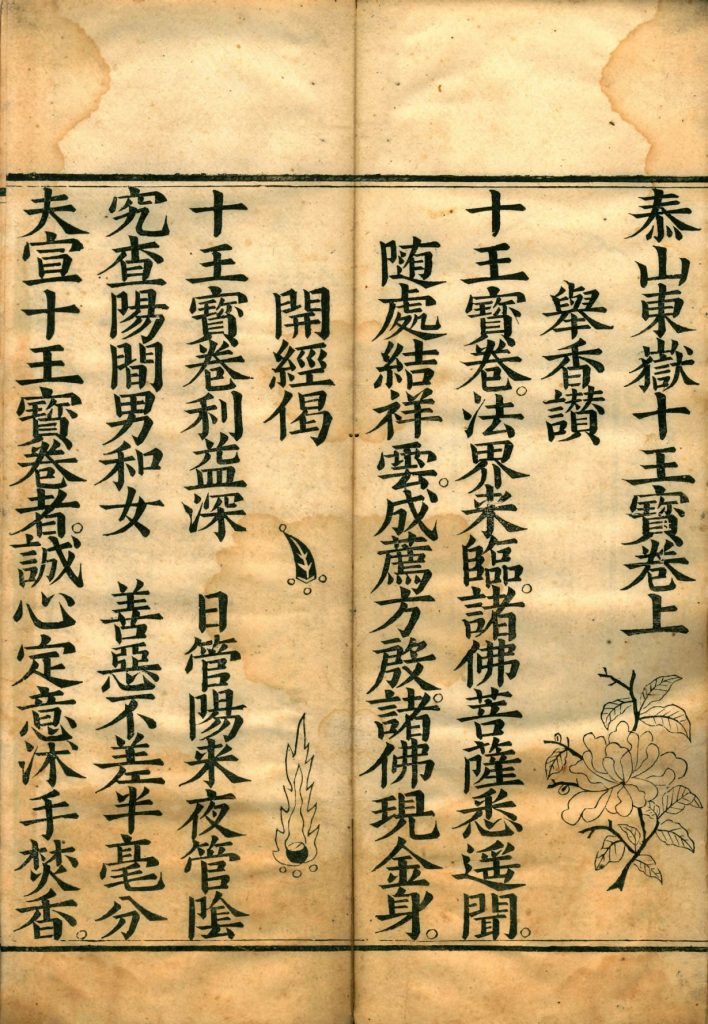 泰山東嶽十王寶卷上
舉香讃
十王寶卷。法界来臨。諸佛菩薩悉遥聞。
随處結祥雲。成薦方殷。諸佛現金身。
開經偈
十王寶卷利益深　日管陽来夜管陰
究查陽間男和女　善惡不差半毫分
夫宣十王寶卷者。誠心定意沭手焚香。